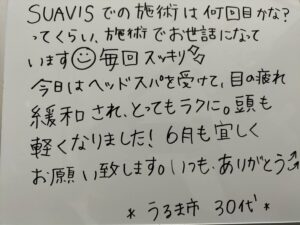 SUAVISでの施術は何回目かな?
ってくらい、施術でお世話になって
います☺毎回スッキリ✨
今日はヘッドスパを受けて、目の疲れ
緩和され、とってもラクに。頭も
軽くなりました!6月も宜しく
お願い致します。いつも、ありがとう⤴
*うるま市 30代*